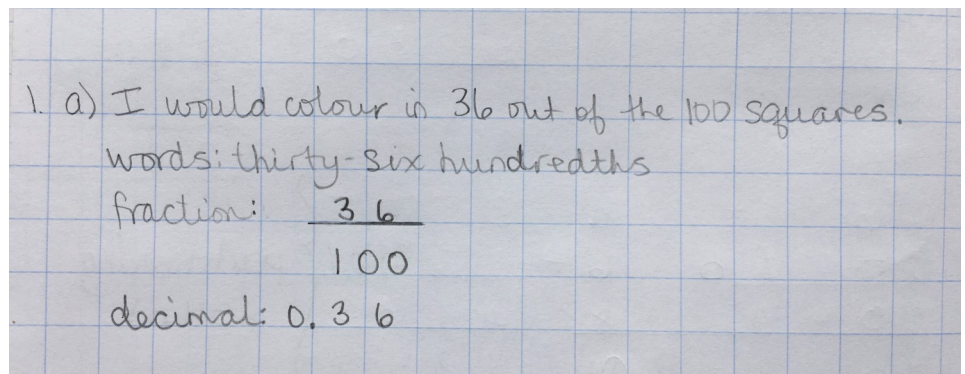 1. a) I would colour in 36 out of the 100 squares.
words: thirty-six hundredths
fraction: 36
100
decimal: 0.36